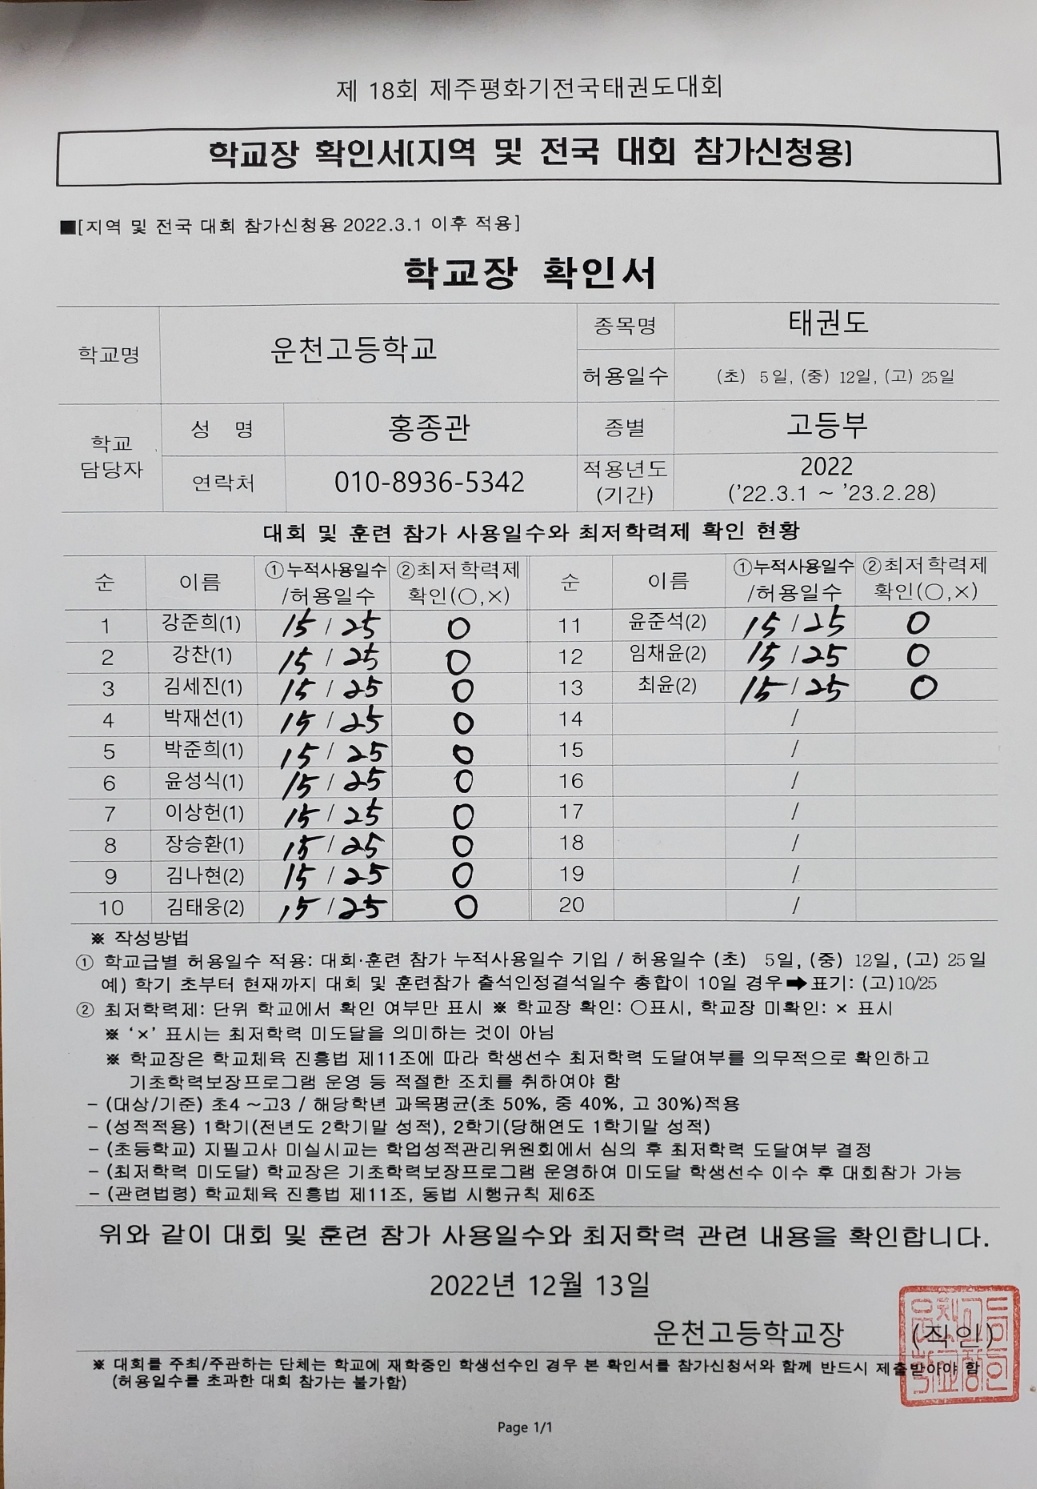 제 18회 제주평화기전국태권도대회
학교장 확인서[지역 및 전국 대회 참가신청용]
■[지역 및 전국 대회 참가신청용 2022.3.1 이후 적용]
학교장 확인서
학교명 운천고등학교 종목명 태권도
허용일수 (초) 5일, (중) 12일, (고) 25일
학교 담당자 성 명 홍종관 종별 고등부
연락처 010-8936-5342 적용년도 (기간) 2022 ('22.3.1 ~ '23.2.28)
대회 및 훈련 참가 사용일수와 최저학력제 확인 현황
순 이름 ①누적사용일수 /허용일수 ②최저학력제 확인(○,×) 순 이름 ①누적사용일수 /허용일수 ②최저학력제 확인(○,×)
1 강준희(1) 15 / 25 O 11 윤준석(2) 15 / 25 O
2 강찬(1) 15 / 25 O 12 임채윤(2) 15 / 25 O
3 김세진(1) 15 / 25 O 13 최윤(2) 15 / 25 O
4 박재선(1) 15 / 25 O 14 /
5 박준희(1) 15 / 25 O 15 /
6 윤성식(1) 15 / 25 O 16 /
7 이상헌(1) 15 / 25 O 17 /
8 장승환(1) 15 / 25 O 18 /
9 김나현(2) 15 / 25 O 19 /
10 김태웅(2) 15 / 25 O 20 /
※ 작성방법
① 학교급별 허용일수 적용: 대회·훈련 참가 누적사용일수 기입 / 허용일수 (초) 5일, (중) 12일, (고) 25일
예) 학기 초부터 현재까지 대회 및 훈련참가 출석인정결석일수 총합이 10일 경우➡표기: (고)10/25
② 최저학력제: 단위 학교에서 확인 여부만 표시 ※ 학교장 확인: ○표시, 학교장 미확인: × 표시
※ '×' 표시는 최저학력 미도달을 의미하는 것이 아님
※ 학교장은 학교체육 진흥법 제11조에 따라 학생선수 최저학력 도달여부를 의무적으로 확인하고
기초학력보장프로그램 운영 등 적절한 조치를 취하여야 함
- (대상/기준) 초4 ~고3 / 해당학년 과목평균(초 50%, 중 40%, 고 30%)적용
- (성적적용) 1학기(전년도 2학기말 성적), 2학기(당해연도 1학기말 성적)
- (초등학교) 지필고사 미실시교는 학업성적관리위원회에서 심의 후 최저학력 도달여부 결정
- (최저학력 미도달) 학교장은 기초학력보장프로그램 운영하여 미도달 학생선수 이수 후 대회참가 가능
- (관련법령) 학교체육 진흥법 제11조, 동법 시행규칙 제6조
위와 같이 대회 및 훈련 참가 사용일수와 최저학력 관련 내용을 확인합니다.
2022년 12월 13일
운천고등학교장 (직인)
※ 대회를 주최/주관하는 단체는 학교에 재학중인 학생선수인 경우 본 확인서를 참가신청서와 함께 반드시 제출받아야 함
(허용일수를 초과한 대회 참가는 불가함)
Page 1/1